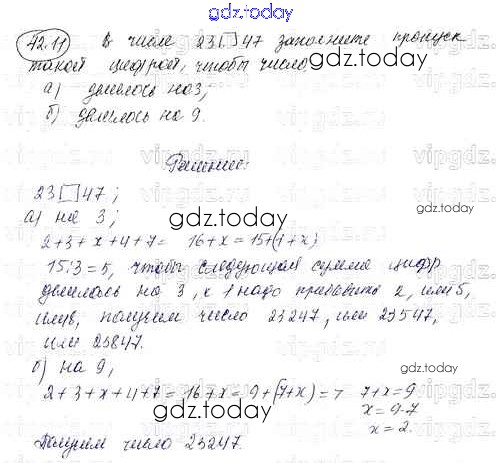 gdz.today
42.11 В числе 23□47 заполните пропуск
такой цифрой, чтобы число:
а) делилось на 3;
б) делилось на 9.
Решение:
23□47;
а) на 3;
2+3+x+4+7= 16+x = 15+(1+x)
15:3=5, чтобы следующая сумма цифр
делилась на 3, к 1 надо прибавить 2, или 5,
или 8, получим число 23247, или 23547,
или 23847.
б) на 9,
2+3+x+4+7=16+x=9+(7+x)=> 7+x=9
x=9-7
x=2.
Получим число 23247.
gdz.today
gdz.today
gdz.today
gdz.today
gdz.today
gdz.today